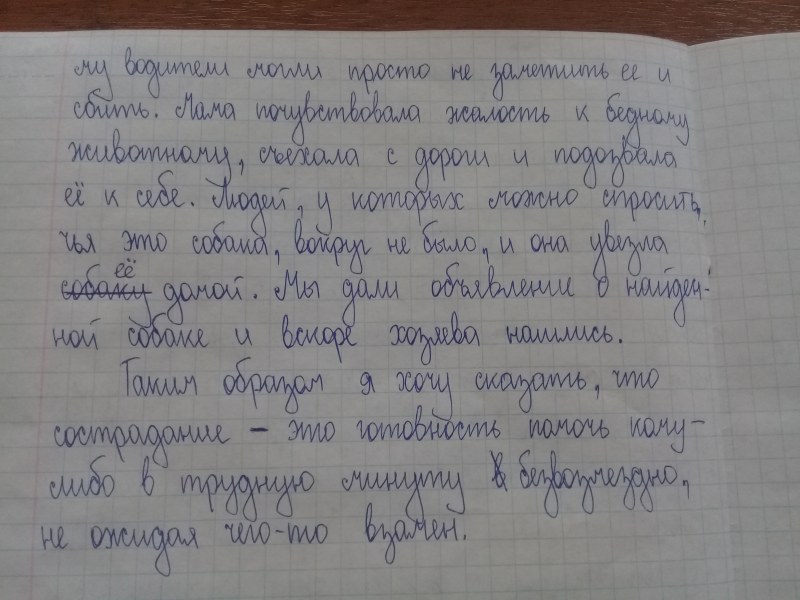 му водители могли просто не заметить ее и
сбить. Мама почувствовала жалость к бедному
животному, съехала с дороги и подозвала
её к себе. Людей, у которых можно спросить,
чья это собака, вокруг не было, и она увезла
собаку её домой. Мы дали объявление о найден-
ной собаке и вскоре хозяева нашлись.
Таким образом я хочу сказать, что
сострадание – это готовность помочь кому-
либо в трудную минуту безвозмездно,
не ожидая чего-то взамен.